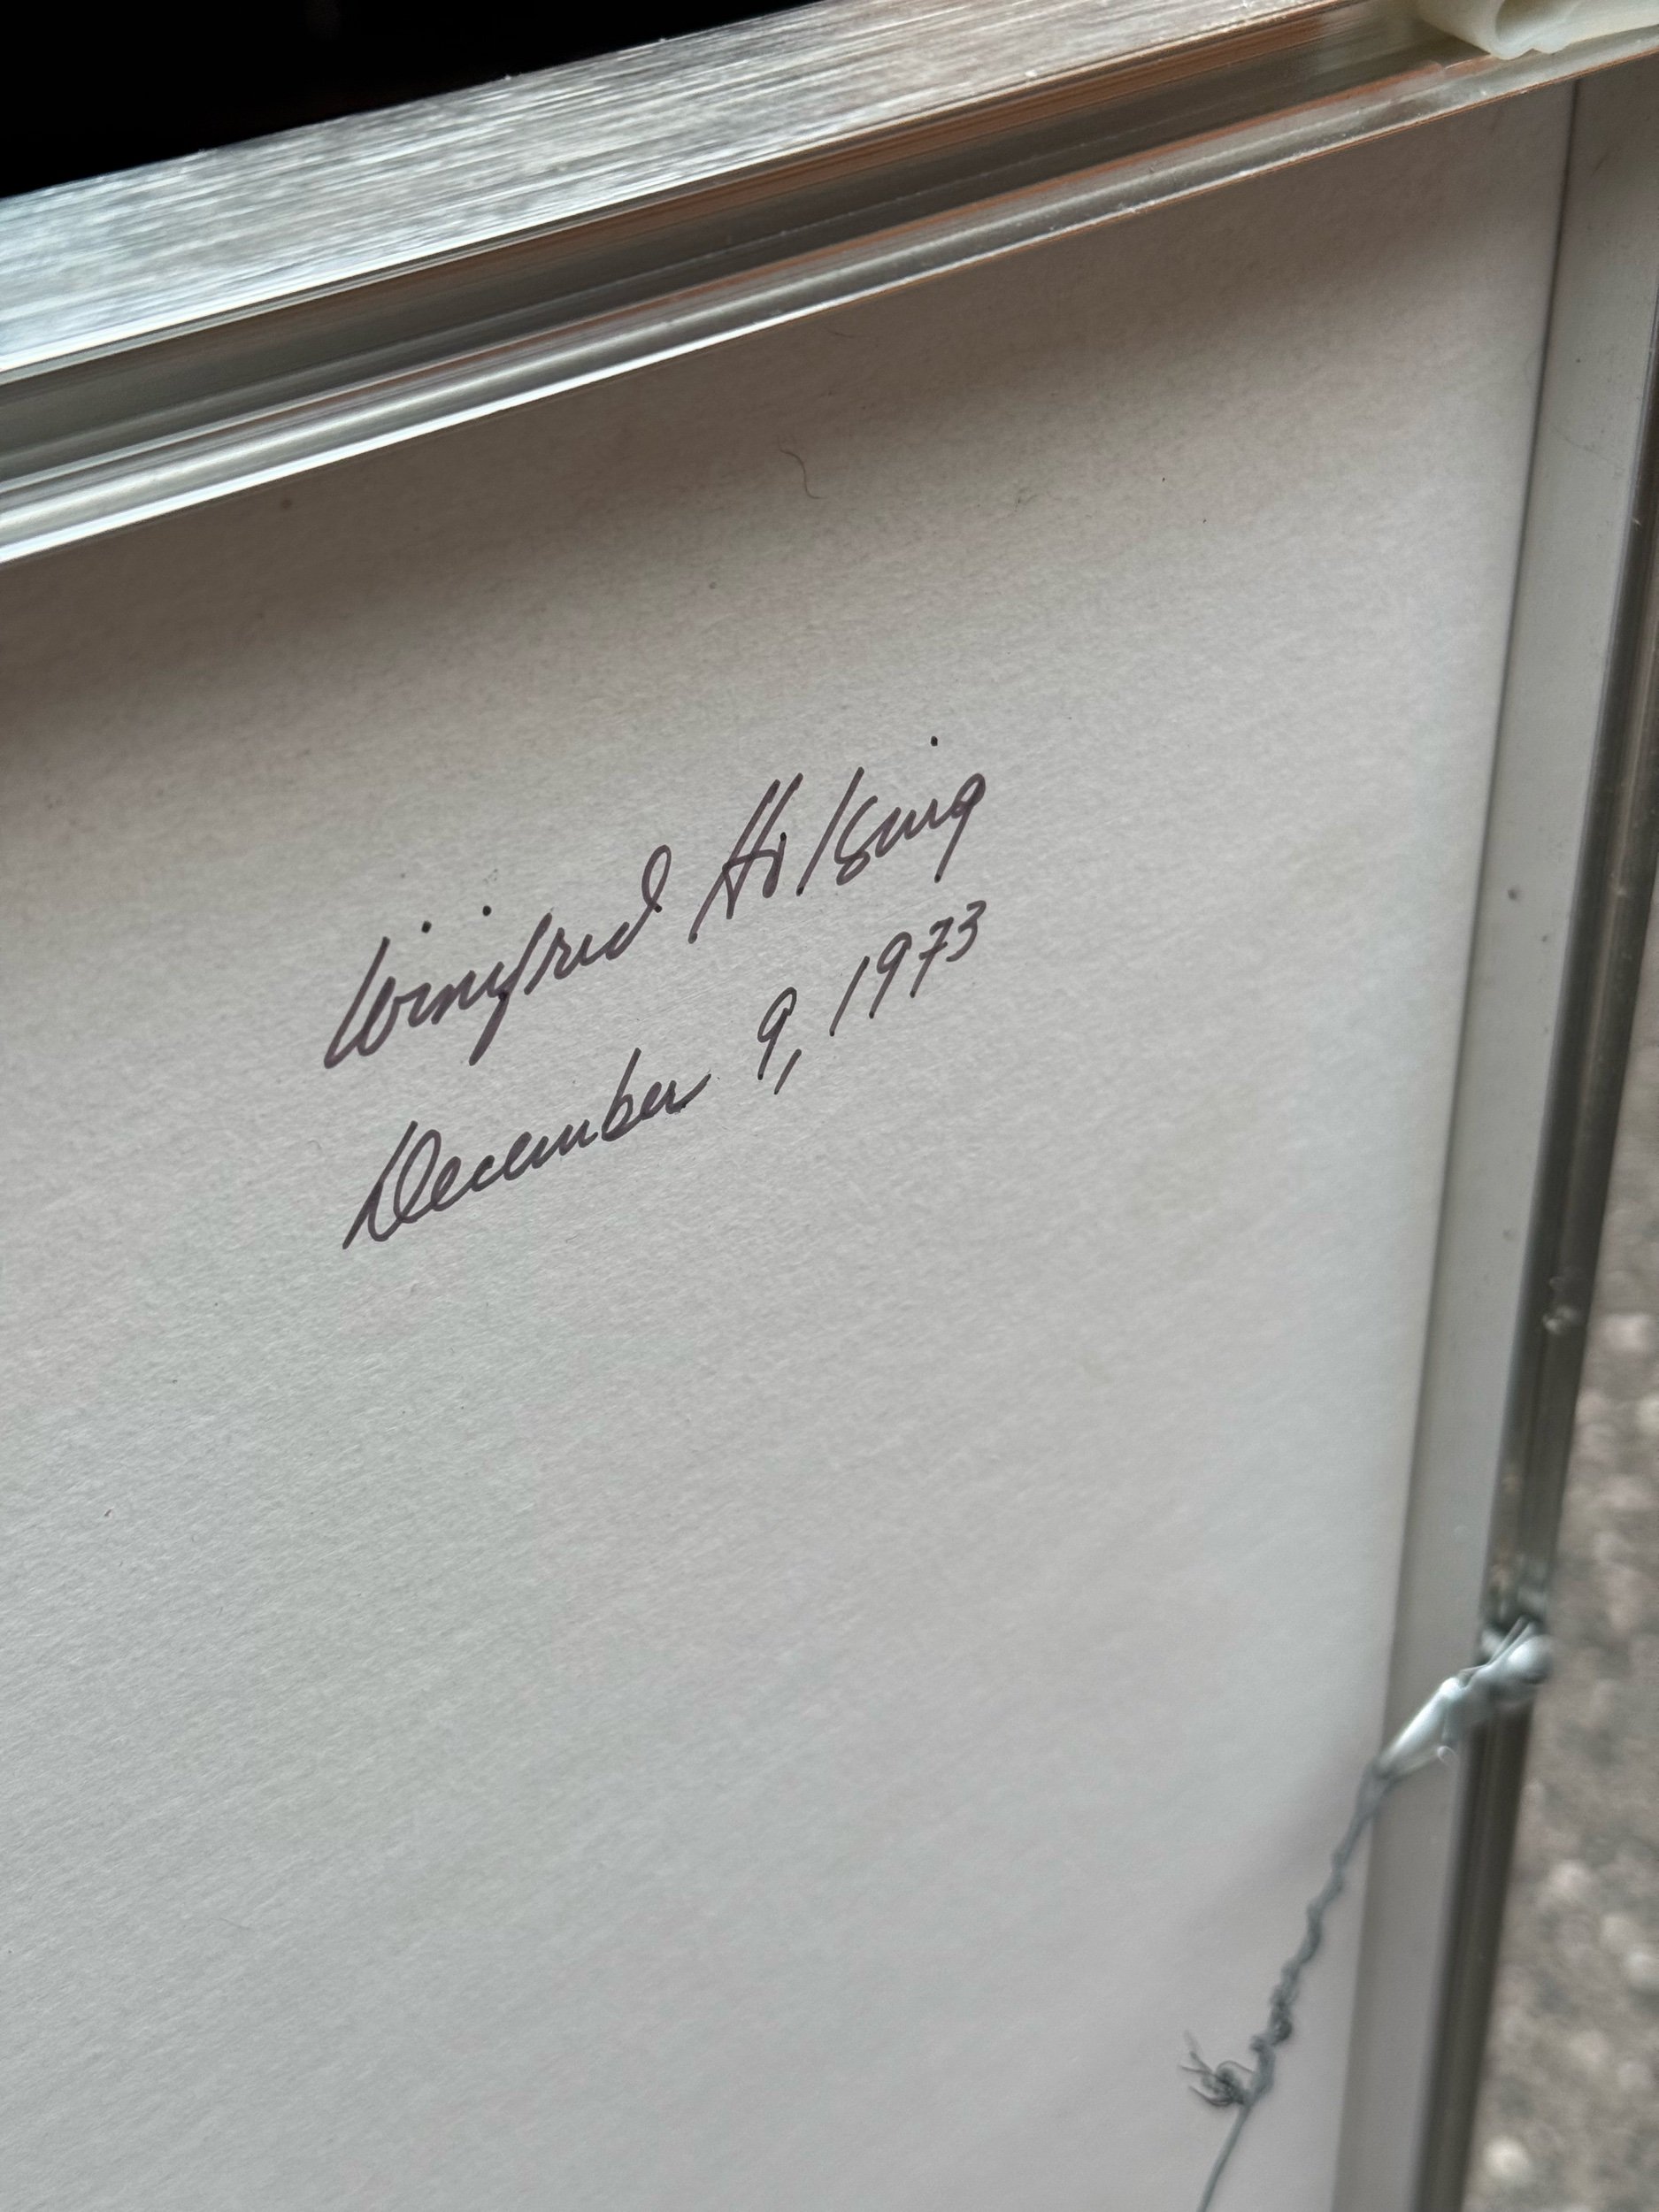 Winifred Holsing
December 9, 1973